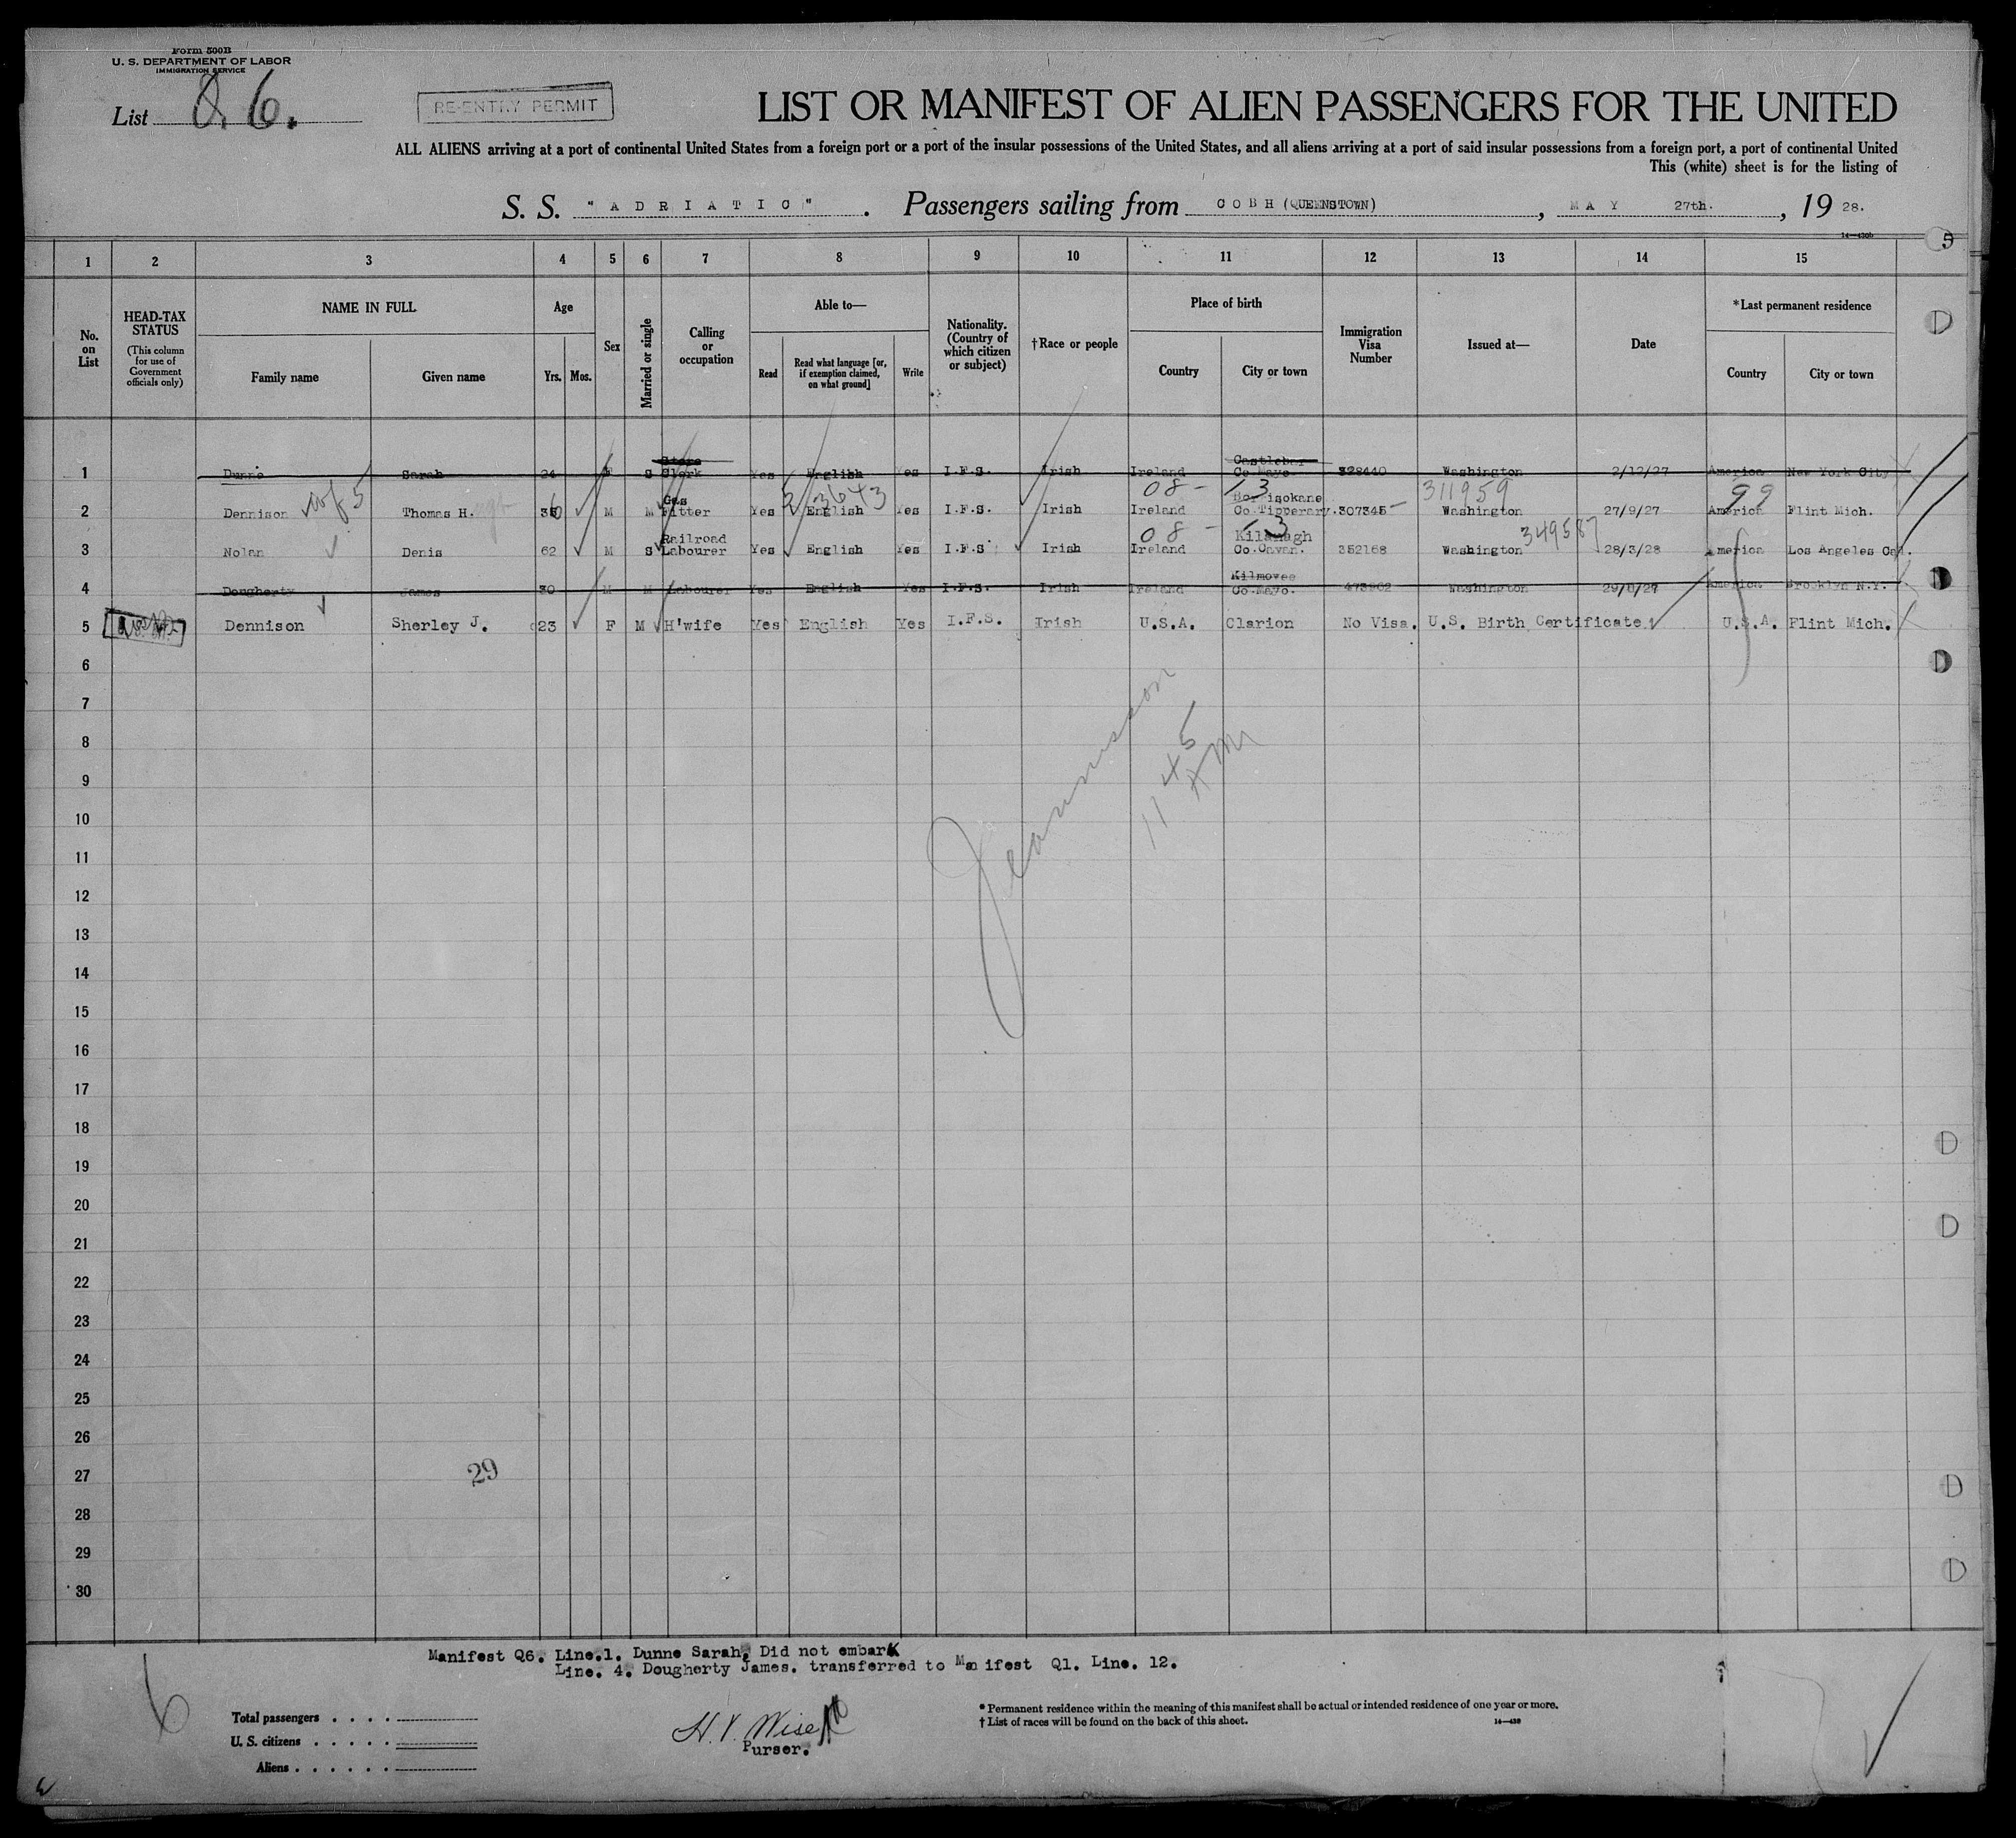 Form 500B
U. S. DEPARTMENT OF LABOR
IMMIGRATION SERVICE
List Q. 6.
RE-ENTRY PERMIT
LIST OR MANIFEST OF ALIEN PASSENGERS FOR THE UNITED
ALL ALIENS arriving at a port of continental United States from a foreign port or a port of the insular possessions of the United States, and all aliens arriving at a port of said insular possessions from a foreign port, a port of continental United
This (white) sheet is for the listing of
S. S. "ADRIATIC". Passengers sailing from COBH (QUEENSTOWN), MAY 27th., 19 28.
14—430b
5
1 2 3 4 5 6 7 8 9 10 11 12 13 14 15
No. on List
HEAD-TAX STATUS (This column for use of Government officials only)
NAME IN FULL
Family name Given name
Age
Yrs. Mos.
Sex
Married or single
Calling or occupation
Able to—
Read Read what language [or, if exemption claimed, on what ground] Write
Nationality. (Country of which citizen or subject)
†Race or people
Place of birth
Country City or town
Immigration Visa Number
Issued at—
Date
*Last permanent residence
Country City or town
1 Dunne Sarah 24 F S Store Clerk Yes English Yes I.F.S. Irish Ireland Castlebar Co.Mayo. 328440 Washington 2/12/27 America New York City
2/3643 08 - 13 311959 99
2 Dennison Thomas H. 36 M M Gas Fitter Yes English Yes I.F.S. Irish Ireland Borrisokane Co.Tipperary. 307345 Washington 27/9/27 America Flint Mich.
08 - 13 349587
3 Nolan Denis 62 M S Railroad Labourer Yes English Yes I.F.S. Irish Ireland Kilanagh Co.Cavan. 352168 Washington 28/3/28 America Los Angeles Cal.
4 Dougherty James 30 M M Labourer Yes English Yes I.F.S. Irish Ireland Kilmovee Co.Mayo. Washington America Brooklyn N.Y.
5 Dennison Sherley J. 23 F M H'wife Yes English Yes I.F.S. Irish U.S.A. Clarion No Visa. U.S. Birth Certificate. U.S.A. Flint Mich.
6
7
8
9
10
11
12
13
14
15
16
17
18
19
20
21
22
23
24
25
26
27
28
29
30
11 45 AM
29
Manifest Q6. Line.1. Dunne Sarah, Did not embark
Line. 4. Dougherty James. transferred to Manifest Q1. Line. 12.
6
Total passengers
U. S. citizens
Aliens
H. V. Wise
Purser.
* Permanent residence within the meaning of this manifest shall be actual or intended residence of one year or more.
† List of races will be found on the back of this sheet.
14—430